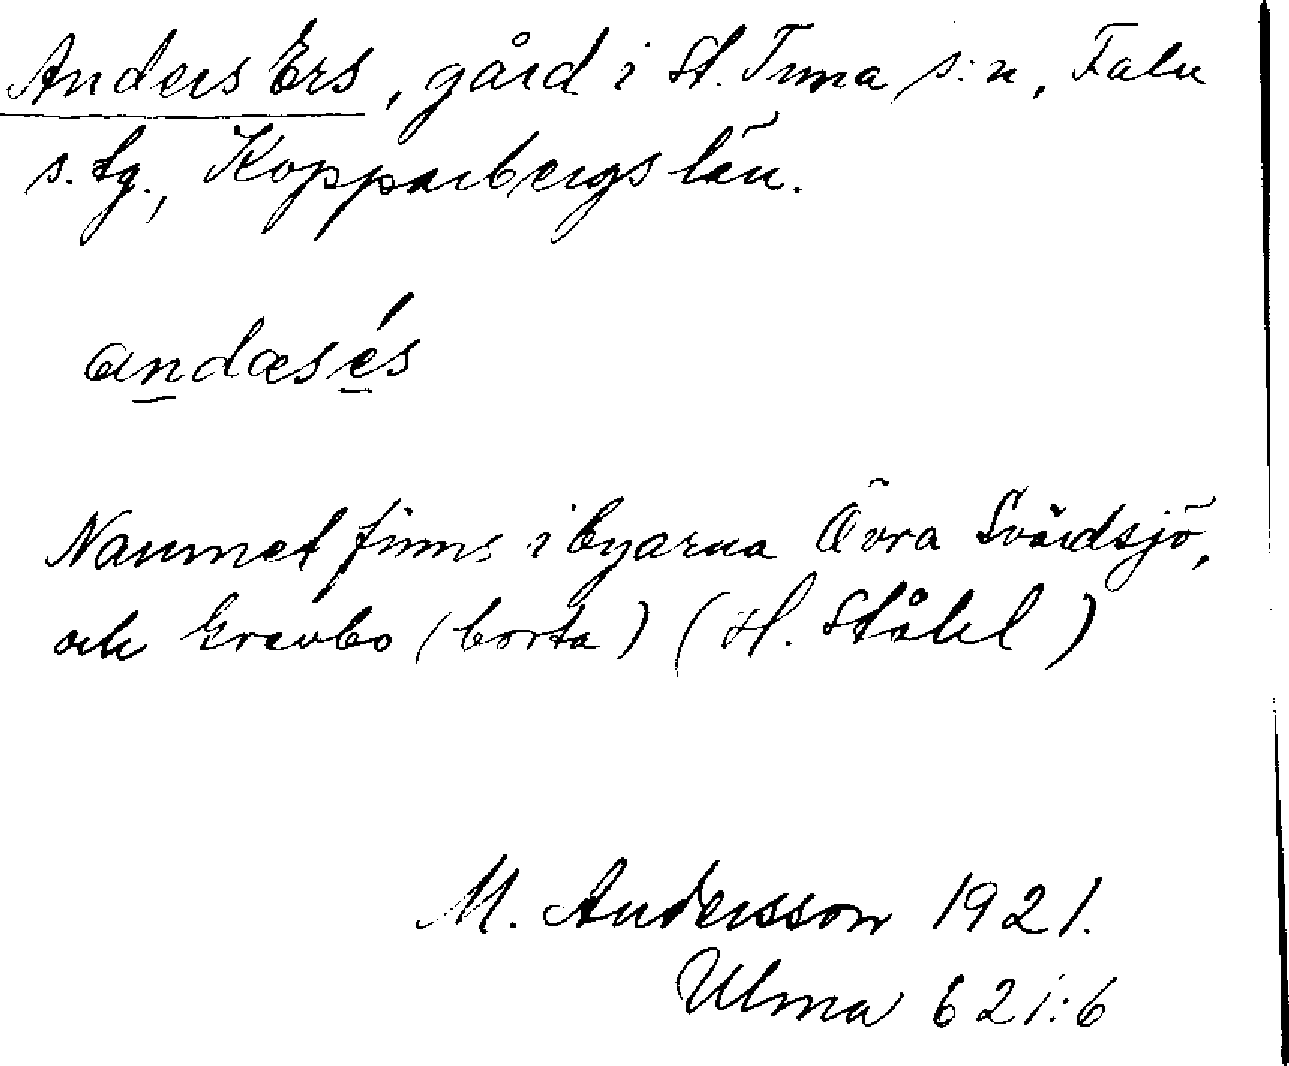 Anders Ers, gård i St. Tuna s:n, Falu
s. tg., Kopparbergs län.
andæsés
Namnet finns i byarna Övra Svärdsjö,
och Grevbo (borta) (H. Ståhl)
M. Andersson 1921.
Ulma 621:6